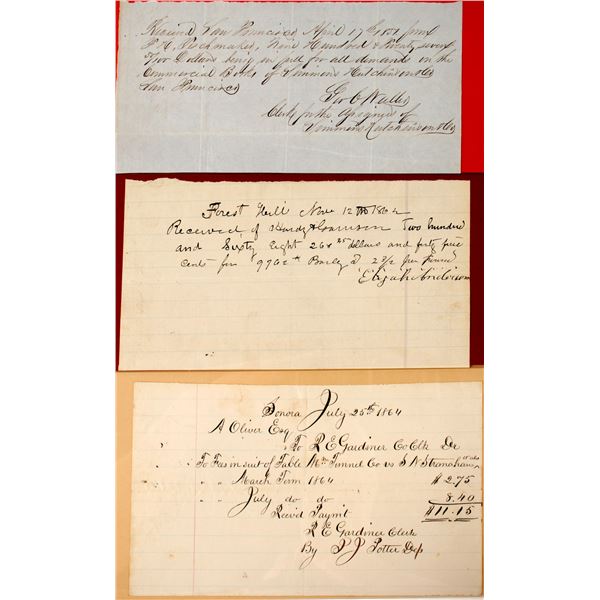 Received San Francisco April 17 1851 from
P. H. Nine Hundred & twenty seven
/100 Dollars being in full for all demands on the
Commercial Books of Simmons Hutchinson & Co
San Francisco
Geo O
Clerk for the assignees of
Simmons Hutchinson & Co
Forest Hill Nov 12 1864
Received of Hardy & Garrison Two hundred
and Sixty Eight 268 45 dollars and forty five
cents for Barley @ 2 1/2 per Pound
Elijah
Sonora July 25th 1864
A Oliver Esq
To R E Gardiner Co Clk Dr
To Fees in suit of Table Mtn Tunnel Co vs S N Stranahan et als
" " March Term 1864 $2.75
" " July do do 8.40
Recvd Paymt $11.15
R E Gardiner Clerk
By J J Potter Dep